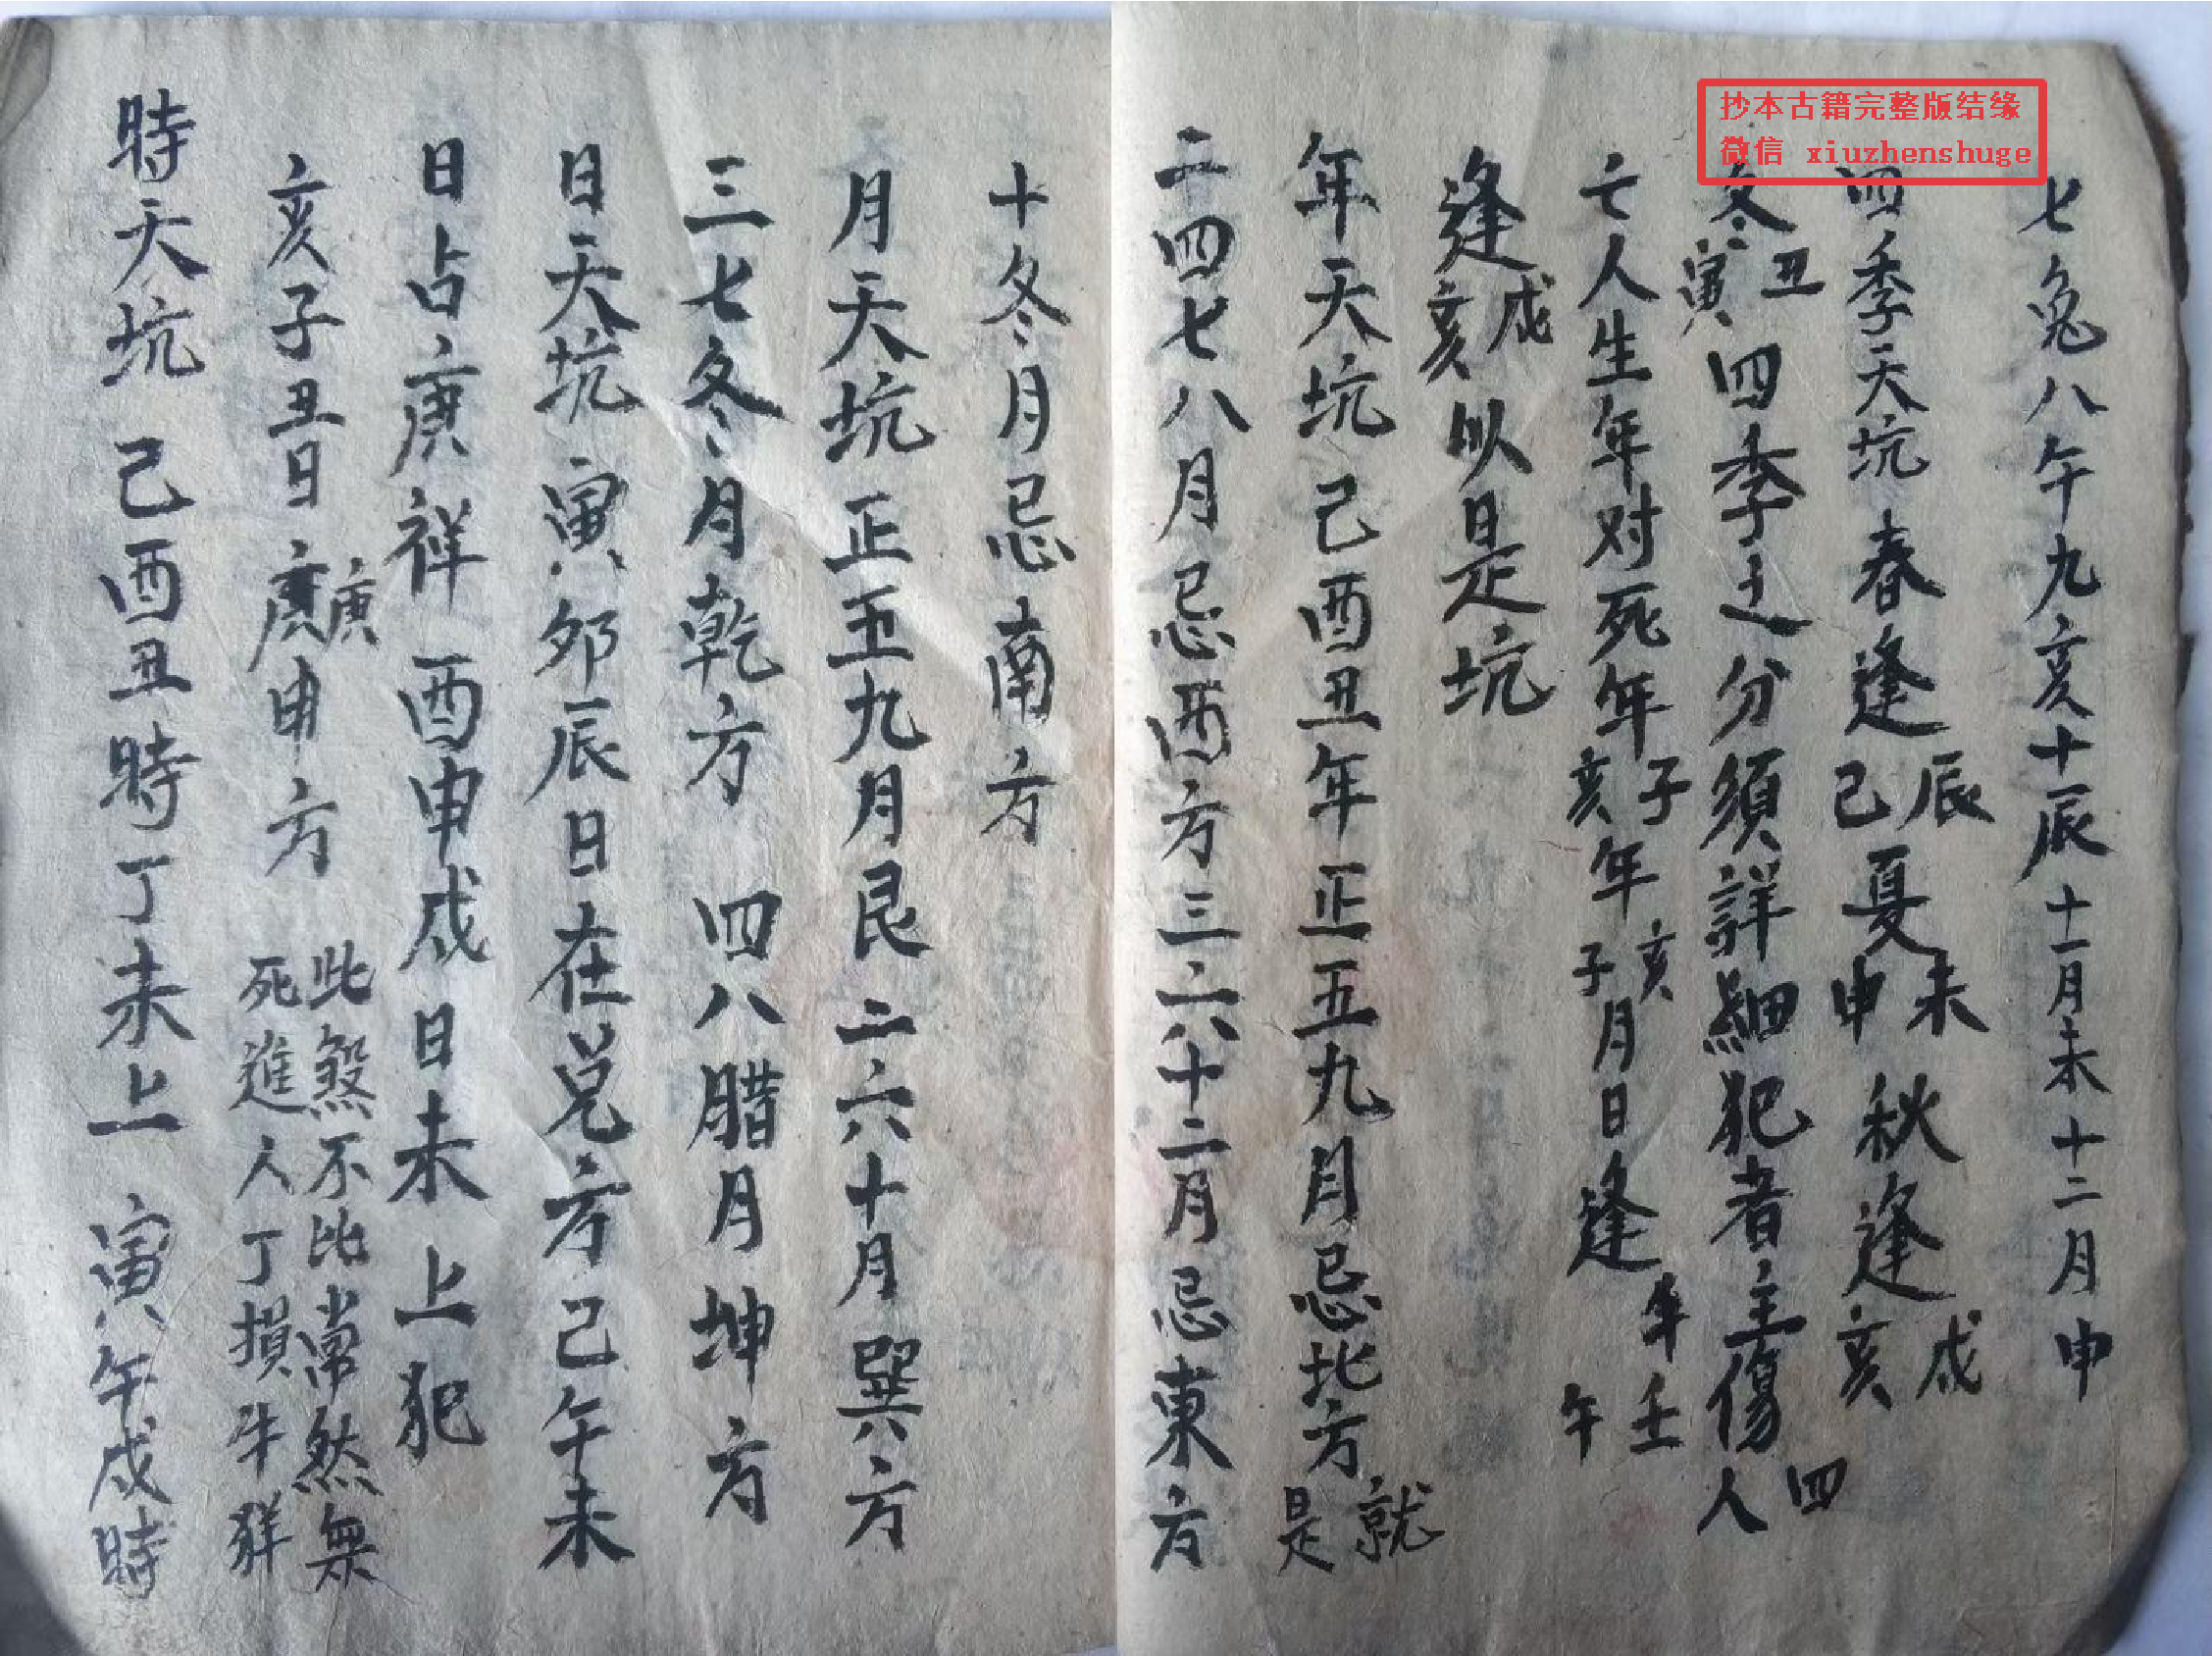 抄本古籍完整版结缘
微信 xiuzhenshuge
七兔八午九亥十辰十一月未十二月申
四季天坑春逢辰己夏未申秋逢戌亥
冬丑寅四季之分須詳細犯者主傷四人
亡人生年对死年子亥年亥子月日逢年壬午
逢戌亥以日是坑
年天坑己酉丑年正五九月忌北方就是
二四七八月忌西方三六十二月忌東方
十冬月忌南方
月天坑正五九月艮二六十月巽方
三七冬月乾方四八腊月坤方
日天坑寅卯辰日在兑方己午未
日占庚祥酉申戌日未上犯
亥子丑日庚庚申方此煞不比常然無死進人丁損牛牂
時天坑己酉丑時丁未上寅午戌時